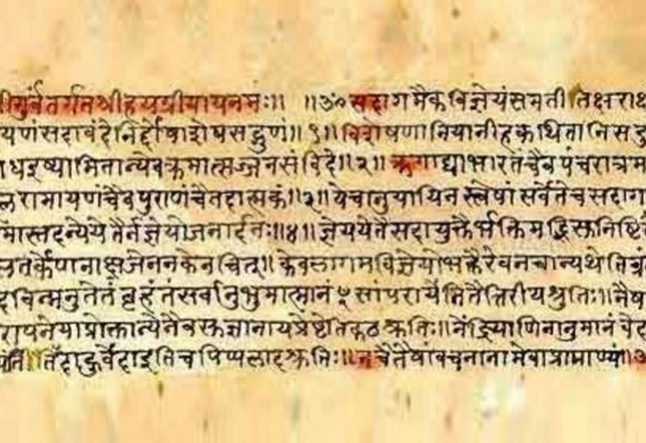 श्रीगुर्वंतर्गतश्रीहयग्रीवायनमः॥ ॥ॐ सदागमैकविज्ञेयंसमतीतक्षराक्ष
यणंसदावंदेनिर्दोषाशेषसद्गुणं॥१॥विशेषणानियानीहकथितानिसदु
धइष्यामितान्येवक्रमात्सज्जनसंविदे॥२॥ऋगाद्याभारतंचैवपंचरात्रम
लरामायणंचैवपुराणंचैतदात्मकं॥३॥येचानुयायिनस्त्वेषांसर्वेतेचसदाग
मास्तदन्येयेतैर्नज्ञेयोजनार्दनः॥४॥ज्ञेयएतैःसदायुक्तैर्भक्तिमद्भिःसुनिष्ठि
लतर्केणनाक्षजेननकेनचित्॥केवलागमविज्ञेयोभक्तैरेवनचान्यथेति
दविन्मनुतेतंबृहंतंसर्वानुभुमात्मानं५सांपरायेइतितैत्तिरीयश्रुतिः॥नैषा
रापनेयाप्रोक्तान्येनैवसुज्ञानायप्रेष्ठेतिकठश्रुतिः॥नेंद्रियाणिनानुमानंवेद
यंति॥ वेदाइतिचपिप्पलादश्रुतिः॥नचैतेषांवचनानामेवाप्रामाण्यं॥